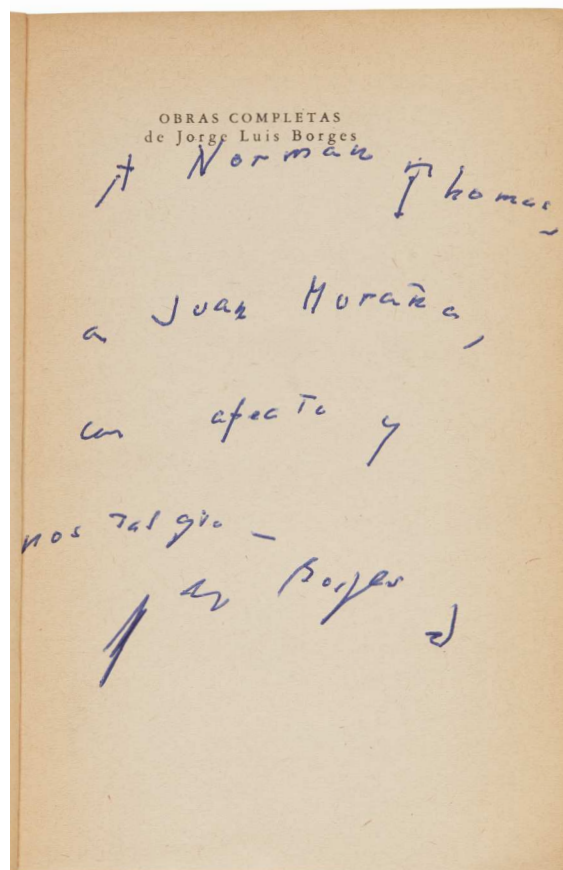 OBRAS COMPLETAS
de Jorge Luis Borges
A Norman Thomas,
a Juan Muraña,
con afecto y
nostalgia —
Borges